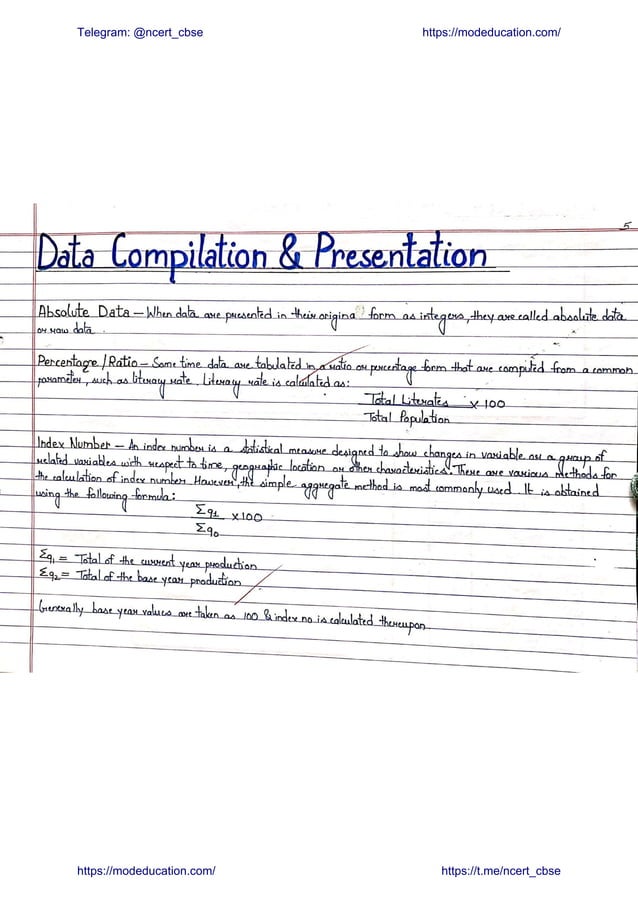 Telegram: @ncert_cbse https://modeducation.com/
5
Data Compilation & Presentation
Absolute Data – When data are presented in their origina form as integers, they are called absolute data
or raw data.
Percentage / Ratio – Some time data are tabulated in a ratio or percentage form that are computed from a common
parameter, such as literacy rate. Literacy rate is calculated as:
Total Literates x 100
Total Population
Index Number – An index number is a statistical measure designed to show changes in variable or a group of
related variables with respect to time, geographic location or other characteristics. There are various methods for
the calculation of index number. However, the simple aggregate method is most commonly used. It is obtained
using the following formula:
Σq1 x100
Σq0
Σq1 = Total of the current year production
Σq2 = Total of the base year production
Generally base year values are taken as 100 & index no. is calculated thereupon
https://modeducation.com/ https://t.me/ncert_cbse